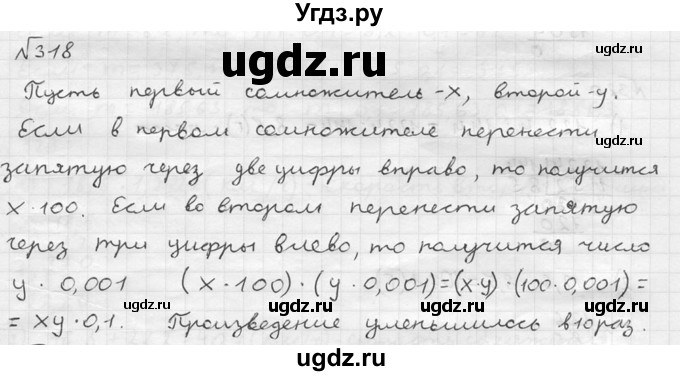 Угдз.ру
№318
ugdz.ru
Пусть первый сомножитель -х, второй-у.
Если в первом сомножителе перенести
запятую через две цифры вправо, то получится
х·100. Если во втором перенести запятую
через три цифры влево, то получится число
у·0,001 (х·100)·(у·0,001)=(х·у)·(100·0,001)=
ugdz.ru ugdz.ru
=ху·0,1. Произведение уменьшилось в 10 раз.
ugdz.ru